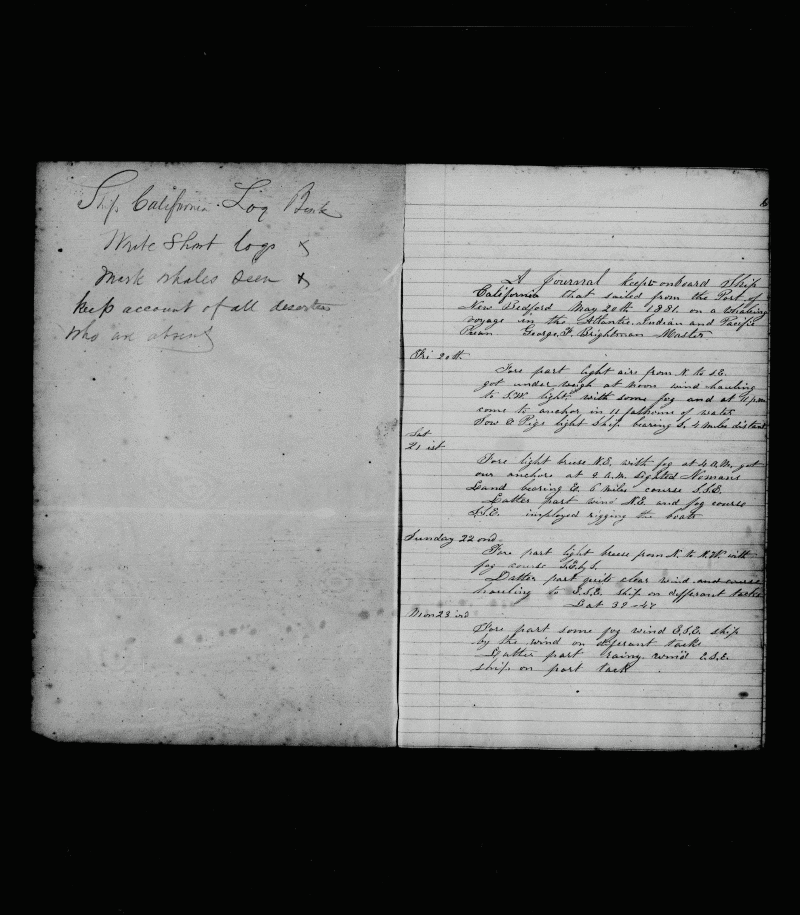 Ship California Log Book
Write Short logs x
Mark whales seen x
Keep account of all deserters
who are absent
A Journal kept onboard Ship
California that sailed from the Port of
New Bedford May 20th 1881. on a whaling
voyage in the Atlantic. Indian and Pacific
Ocean George. F. Brightman Master
Fri 20th.
Fore part light airs from N. to S.E.
got under weigh at noon wind hauling
to S.W. light. with some fog and at 11 p.m
come to anchor in 11 fathoms of water
Sow & Pigs light Ship bearing S. 4 miles distant
Sat
21 ist
Fore light breese N.E. with fog at 4 A.M. got
our anchors at 9 A.M. Sighted Nomans
Land bearing E. 6 miles course S.S.E.
Latter part wind N.E. and fog course
S.S.E. imployed rigging the boats
Sunday 22 ond.
Fore part light breese from N. to N.W. with
fog course S.E.by S.
Latter part quite clear wind and course
hauling to S.S.E. ship on differant tacks
Lat 39-47
Mon 23 ird
Fore part some fog wind E.S.E. ship
by the wind on diferant tacks
Latter part rainy wind E.S.E.
ship on port tack